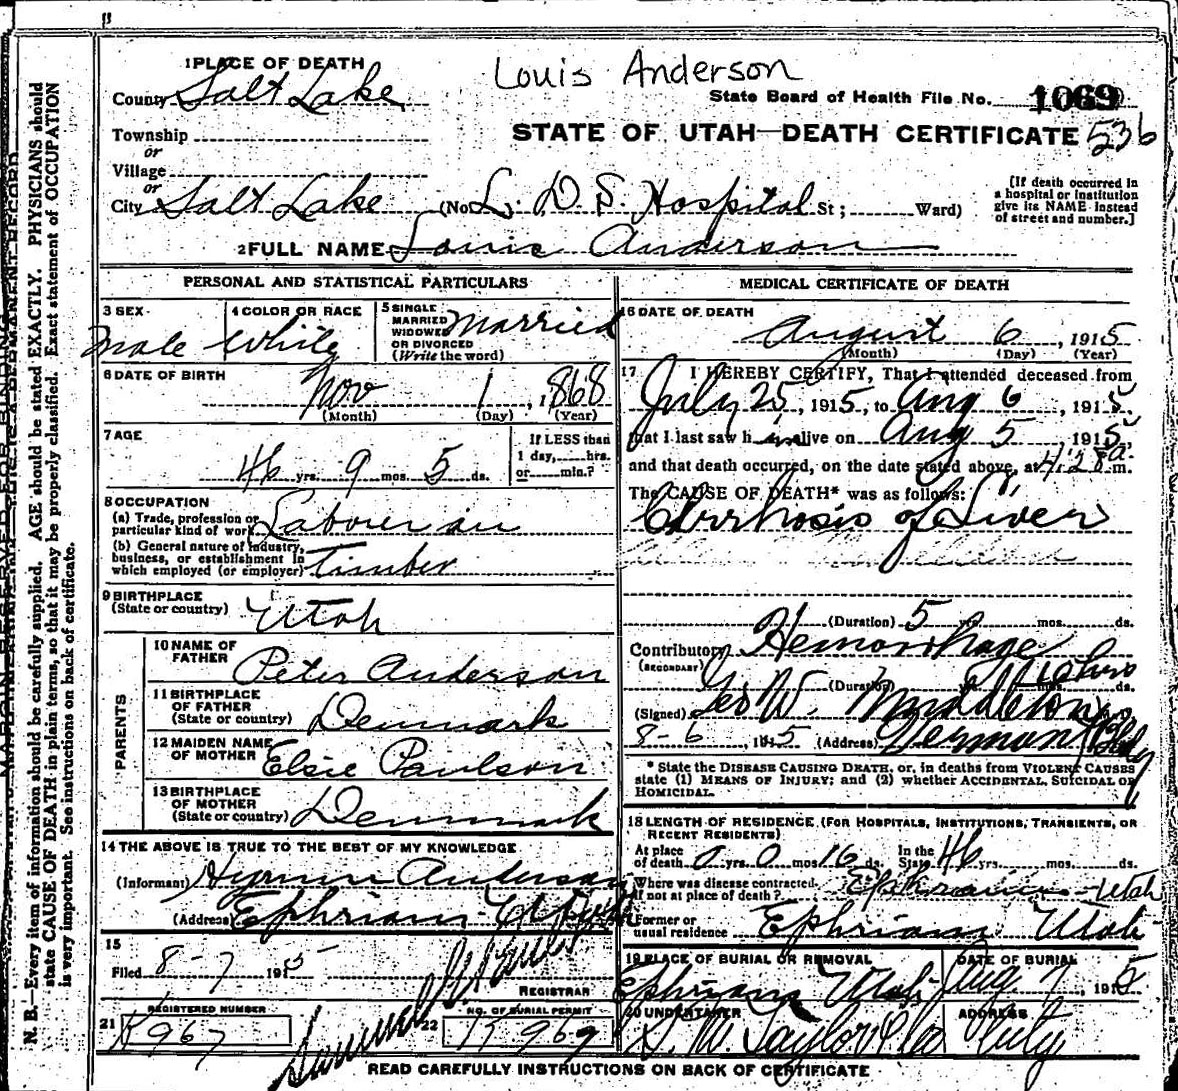 1 PLACE OF DEATH
Louis Anderson
County Salt Lake
State Board of Health File No. 1069
Township
or
STATE OF UTAH—DEATH CERTIFICATE 536
Village
or
City Salt Lake (No. L. D. S. Hospital St; Ward)
[If death occurred in
a hospital or institution
give its NAME instead
of street and number.]
2 FULL NAME Louis Anderson
PERSONAL AND STATISTICAL PARTICULARS
3 SEX
Male
4 COLOR OR RACE
White
5 SINGLE
MARRIED
WIDOWED
OR DIVORCED
(Write the word)
Married
6 DATE OF BIRTH
Nov 1, 1868
(Month) (Day) (Year)
7 AGE
46 yrs. 9 mos. 5 ds.
If LESS than
1 day, hrs.
or min.?
8 OCCUPATION
(a) Trade, profession or
particular kind of work Laborer in
(b) General nature of industry,
business, or establishment in
which employed (or employer) Timber
9 BIRTHPLACE
(State or country) Utah
PARENTS
10 NAME OF
FATHER Peter Anderson
11 BIRTHPLACE
OF FATHER
(State or country) Denmark
12 MAIDEN NAME
OF MOTHER Elsie Paulson
13 BIRTHPLACE
OF MOTHER
(State or country) Denmark
14 THE ABOVE IS TRUE TO THE BEST OF MY KNOWLEDGE
(Informant) Hyrum Anderson
(Address) Ephriam
15
Filed 8-7 1915
REGISTRAR
21 REGISTERED NUMBER
K967
22 NO. OF BURIAL PERMIT
K969
MEDICAL CERTIFICATE OF DEATH
16 DATE OF DEATH
August 6, 1915
(Month) (Day) (Year)
17 I HEREBY CERTIFY, That I attended deceased from
July 25, 1915, to Aug 6, 1915,
that I last saw him alive on Aug 5, 1915,
and that death occurred, on the date stated above, at 4:28 a. m.
The CAUSE OF DEATH* was as follows:
Cirrhosis of Liver
(Duration) 5 yrs. mos. ds.
Contributory Hemorrhage
(SECONDARY)
(Duration) yrs. mos. ds.
(Signed) Geo W. Middleton
8-6, 1915 (Address) Vermont Bldg
* State the DISEASE CAUSING DEATH, or, in deaths from VIOLENT CAUSES
state (1) MEANS OF INJURY; and (2) whether ACCIDENTAL, SUICIDAL OR
HOMICIDAL.
18 LENGTH OF RESIDENCE (FOR HOSPITALS, INSTITUTIONS, TRANSIENTS, OR
RECENT RESIDENTS)
At place
of death 0 yrs. 0 mos. 16 ds.
In the
State 46 yrs. mos. ds.
Where was disease contracted,
if not at place of death? Ephraim - Utah
Former or
usual residence Ephriam Utah
19 PLACE OF BURIAL OR REMOVAL
Ephriam Utah
DATE OF BURIAL
Aug. 7, 1915
20 UNDERTAKER
S. M. Taylor & Co
ADDRESS
City
READ CAREFULLY INSTRUCTIONS ON BACK OF CERTIFICATE
N. B.—Every item of information should be carefully supplied. AGE should be stated EXACTLY. PHYSICIANS should
state CAUSE OF DEATH in plain terms, so that it may be properly classified. Exact statement of OCCUPATION
is very important. See instructions on back of certificate.